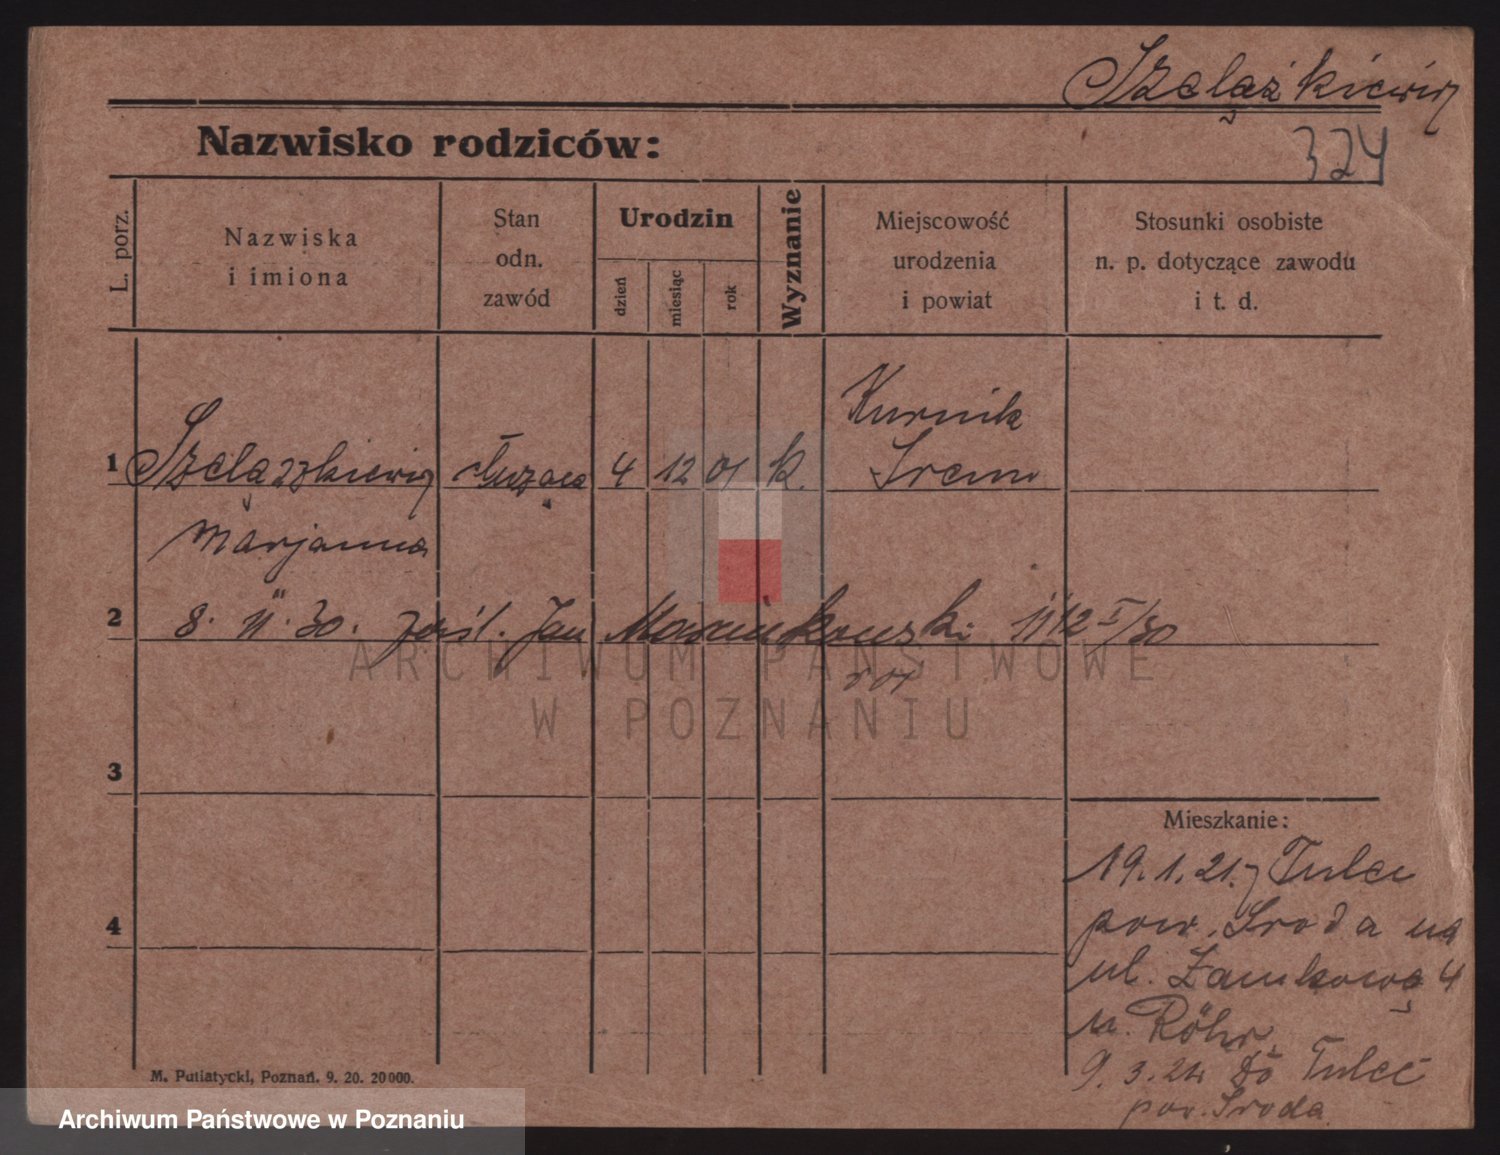 Szelążkiewicz
Nazwisko rodziców:
324
L. porz.
Nazwiska
i imiona
Stan
odn.
zawód
Urodzin
dzień
miesiąc
rok
Wyznanie
Miejscowość
urodzenia
i powiat
Stosunki osobiste
n. p. dotyczące zawodu
i t. d.
Kurnik
1 Szelązkiewicz służąca 4 12 01 k. Srem
Marjanna
2 8. 11. 30. zaśl. Jan Marcinkowski 12 I/30
ARCHIWUM PAŃSTWOWE
W POZNANIU
3
Mieszkanie:
19.1.21. z Tulce
4
pow. Sroda na
ul. Zamkową 4
u. Röhr.
9. 3. 24 do Tulec
pow. Sroda
M. Putiatycki, Poznań. 9. 20. 20000.
Archiwum Państwowe w Poznaniu